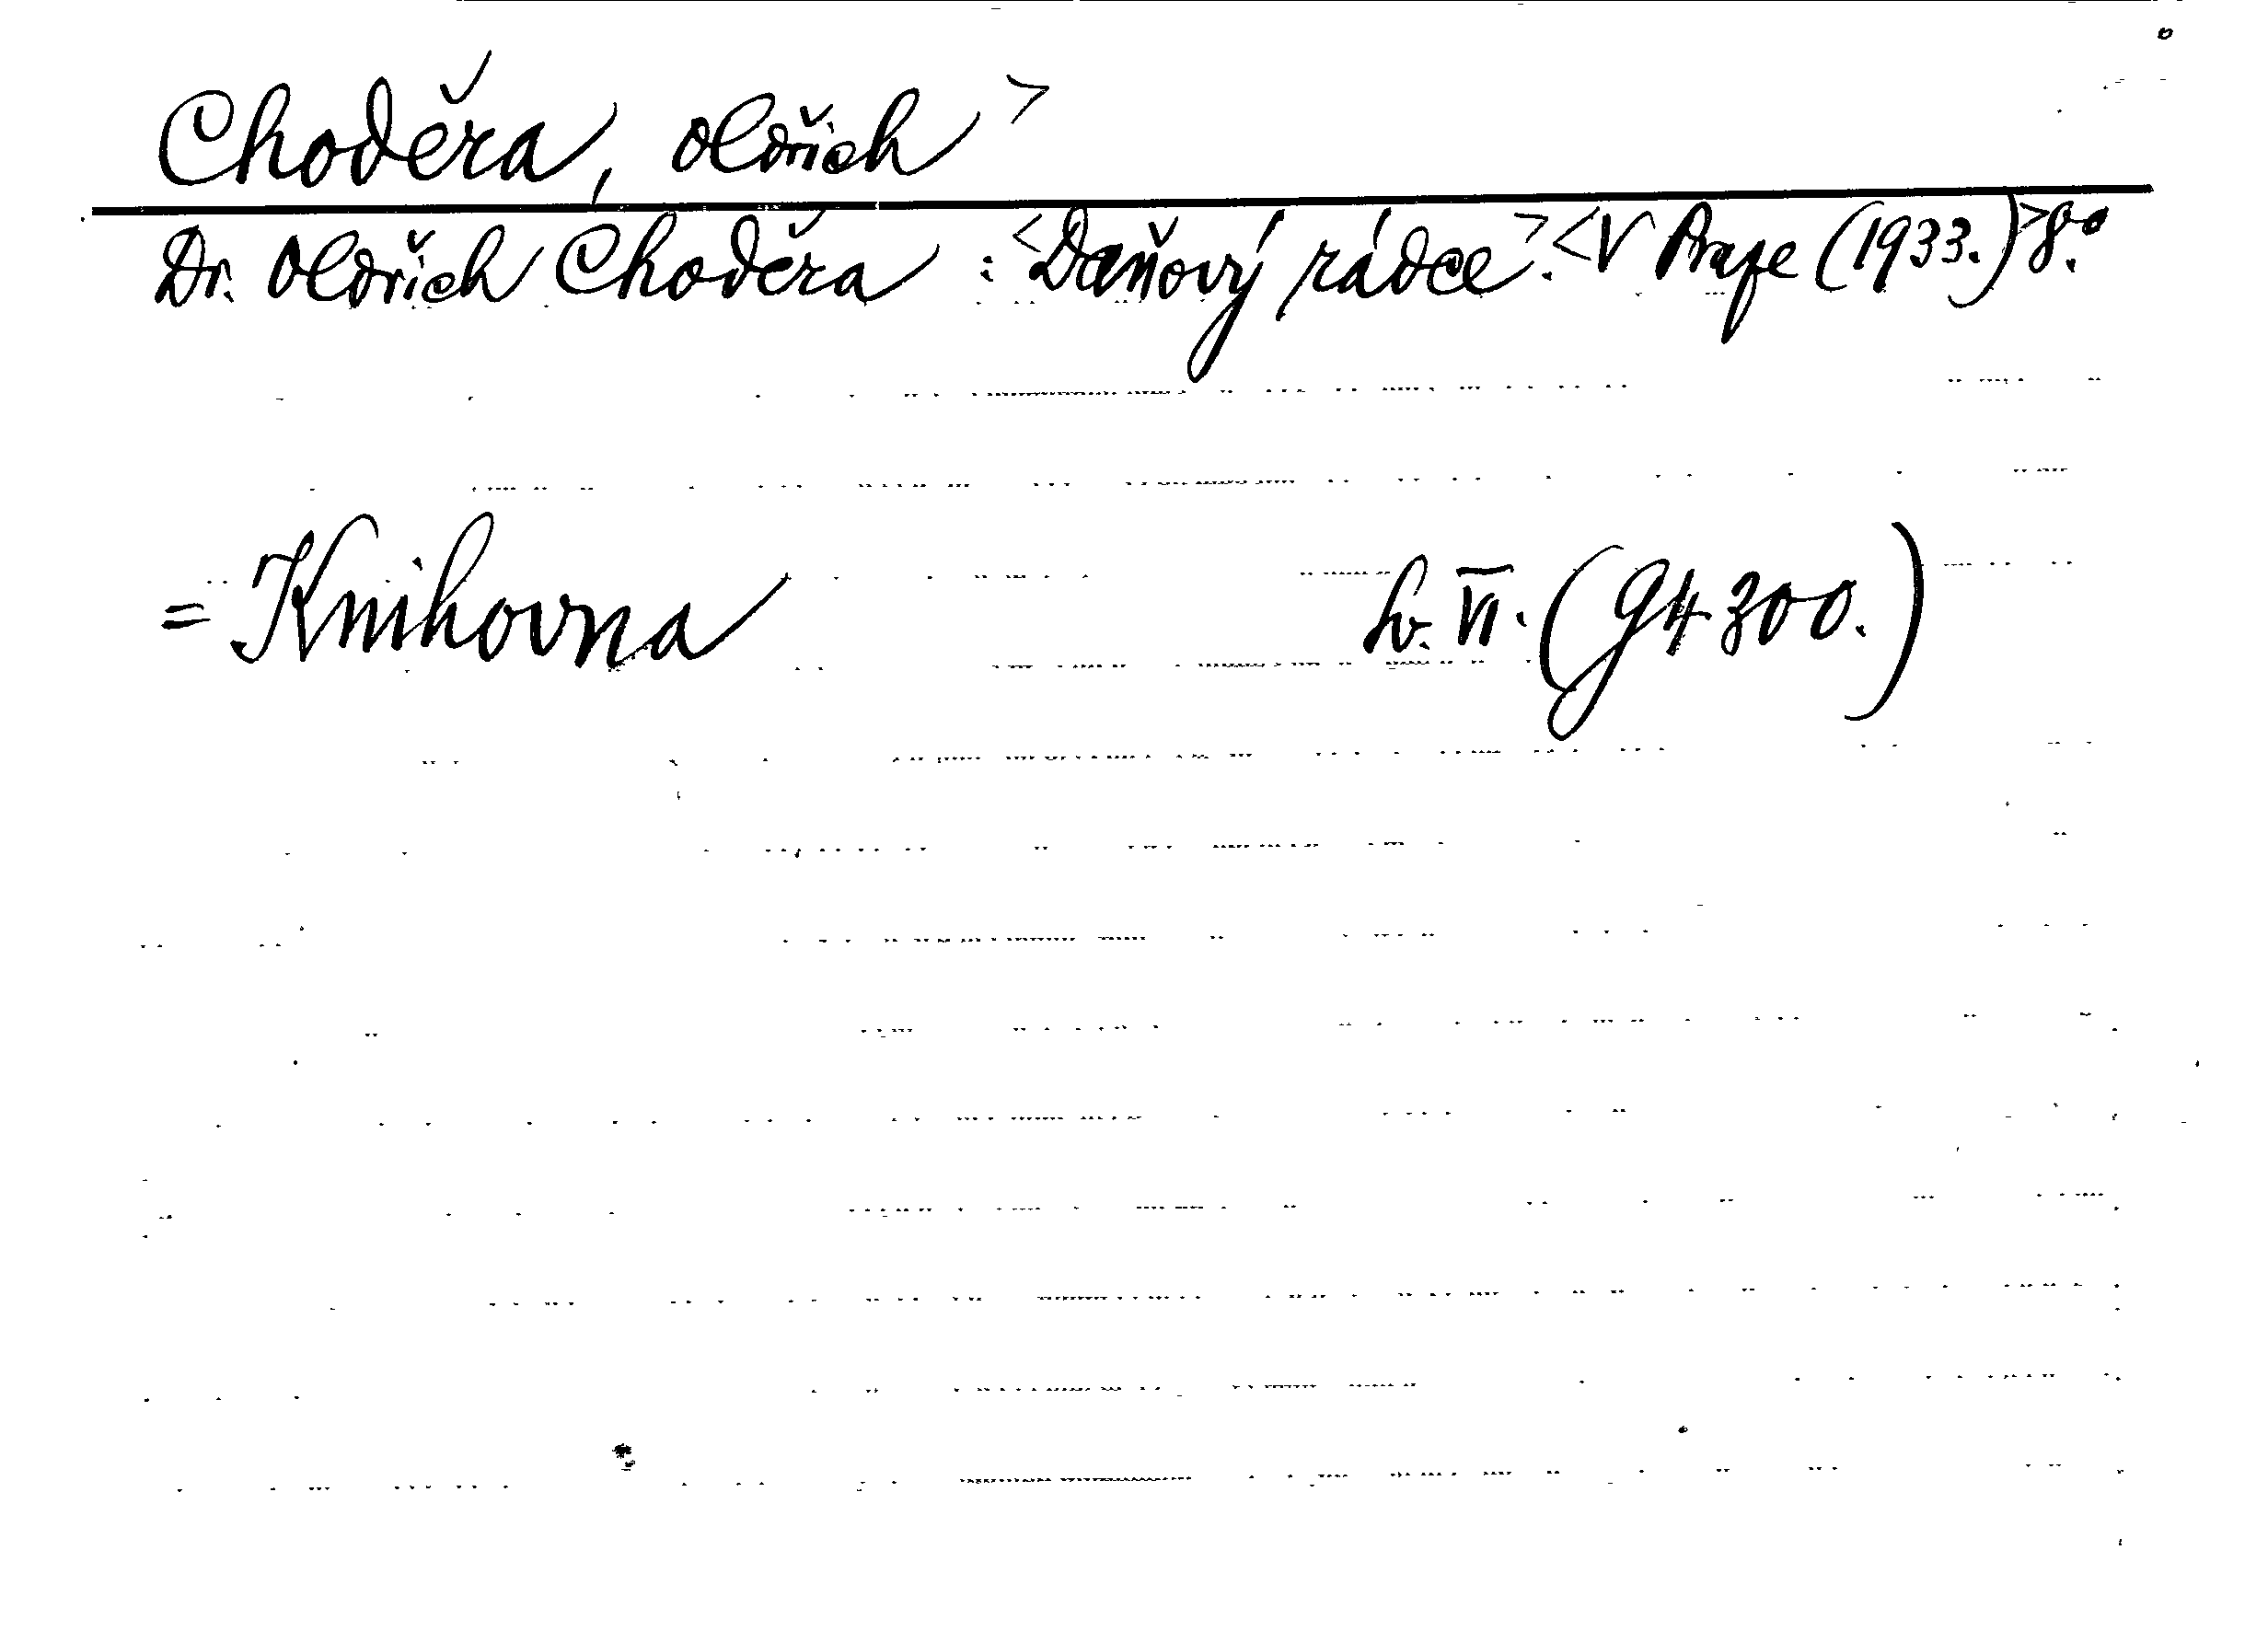 Choděra, Oldřich >
Dr. Oldřich Choděra : <Daňový rádce>. <V Praze (1933.)> 8.°
= Knihovna sv. VI. (G4300.)